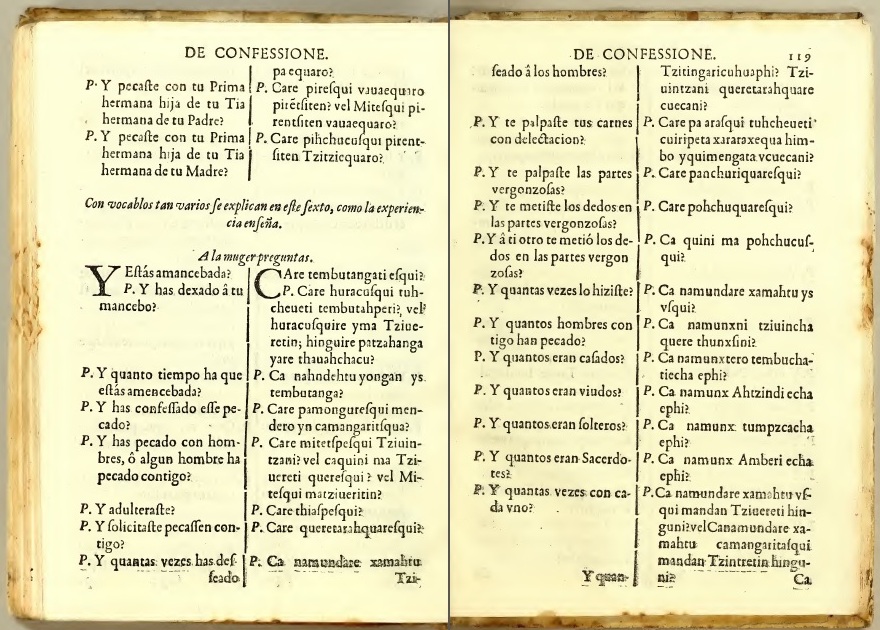 DE CONFESSIONE.
P. Y pecaſte con tu Prima
hermana hija de tu Tia
hermana de tu Padre?
P. Y pecaſte con tu Prima
hermana hija de tu Tia
hermana de tu Madre?
pa equaro?
P. Care pireſqui vauaequaro
pirẽtſiten? vel Miteſqui pi-
rentſiten vauaequaro?
P. Care pihchucuſqui pirent-
ſiten Tzitziequaro?
Con vocablos tan varios ſe explican en eſte ſexto, como la experien-
cia enſeña.
A la muger preguntas.
Y Eſtás amancebada?
P. Y has dexado â tu
mancebo?
P. Y quanto tiempo ha que
eſtás amencebada?
P. Y has confeſſado eſſe pe-
cado?
P. Y has pecado con hom-
bres, ô algun hombre ha
pecado contigo?
P. Y adulteraſte?
P. Y ſolicitaſte pecaſſen con-
tigo?
P. Y quantas vezes has deſ-
ſeado
CAre tembutangati eſqui?
P. Care huracuſqui tuh-
cheueti tembutahperi? vel
huracuſquire yma Tziue-
retin; hinguire patzahanga
yare thauahchacu?
P. Ca nahndehtu yongan ys
tembutanga?
P. Care pamongureſqui men-
dero yn camangaritſqua?
P. Care mitetſpeſqui Tziuin-
tzani? vel caquini ma Tzi-
uereti quereſqui? vel Mi-
teſqui matziueritin?
P. Care thiaſpeſqui?
P. Care queretarahquareſqui?
P. Ca namundare xamahtu
Tzi-
DE CONFESSIONE. 119
ſeado â los hombres?
P. Y te palpaſte tus carnes
con delectacion?
P. Y te palpaſte las partes
vergonzoſas?
P. Y te metiſte los dedos en
las partes vergonzoſas?
P. Y â ti otro te metió los de-
dos en las partes vergon
zoſas?
P. Y quantas vezes lo hiziſte?
P. Y quantos hombres con
tigo han pecado?
P. Y quantos eran caſados?
P. Y quantos eran viudos?
P. Y quantos eran ſolteros?
P. Y quantos eran Sacerdo-
tes?
P. Y quantas vezes con ca-
da vno?
Y quan-
Tzitingaricuhuaphi? Tzi-
uintzani queretarahquare
cuecani?
P. Care pa araſqui tuhcheueti
cuiripeta xararaxequa him-
bo yquimengata vcuecani?
P. Care panchuriquareſqui?
P. Care pohchuquareſqui?
P. Ca quini ma pohchucuſ-
qui?
P. Ca namundare xamahtu ys
vſqui?
P. Ca namunxni tziuincha
quere thunxſini?
P. Ca namunxtero tembucha-
tiecha ephi?
P. Ca namunx Ahtzindi echa
ephi?
P. Ca namunx tumpzcacha
ephi?
P. Ca namunx Amberi echa
ephi?
P. Ca namundare xamahtu vſ-
qui mandan Tziuereti hin-
guni? vel Canamundare xa-
mahtu camangaritaſqui
mandan Tzintretin hingu-
ni?
Ca